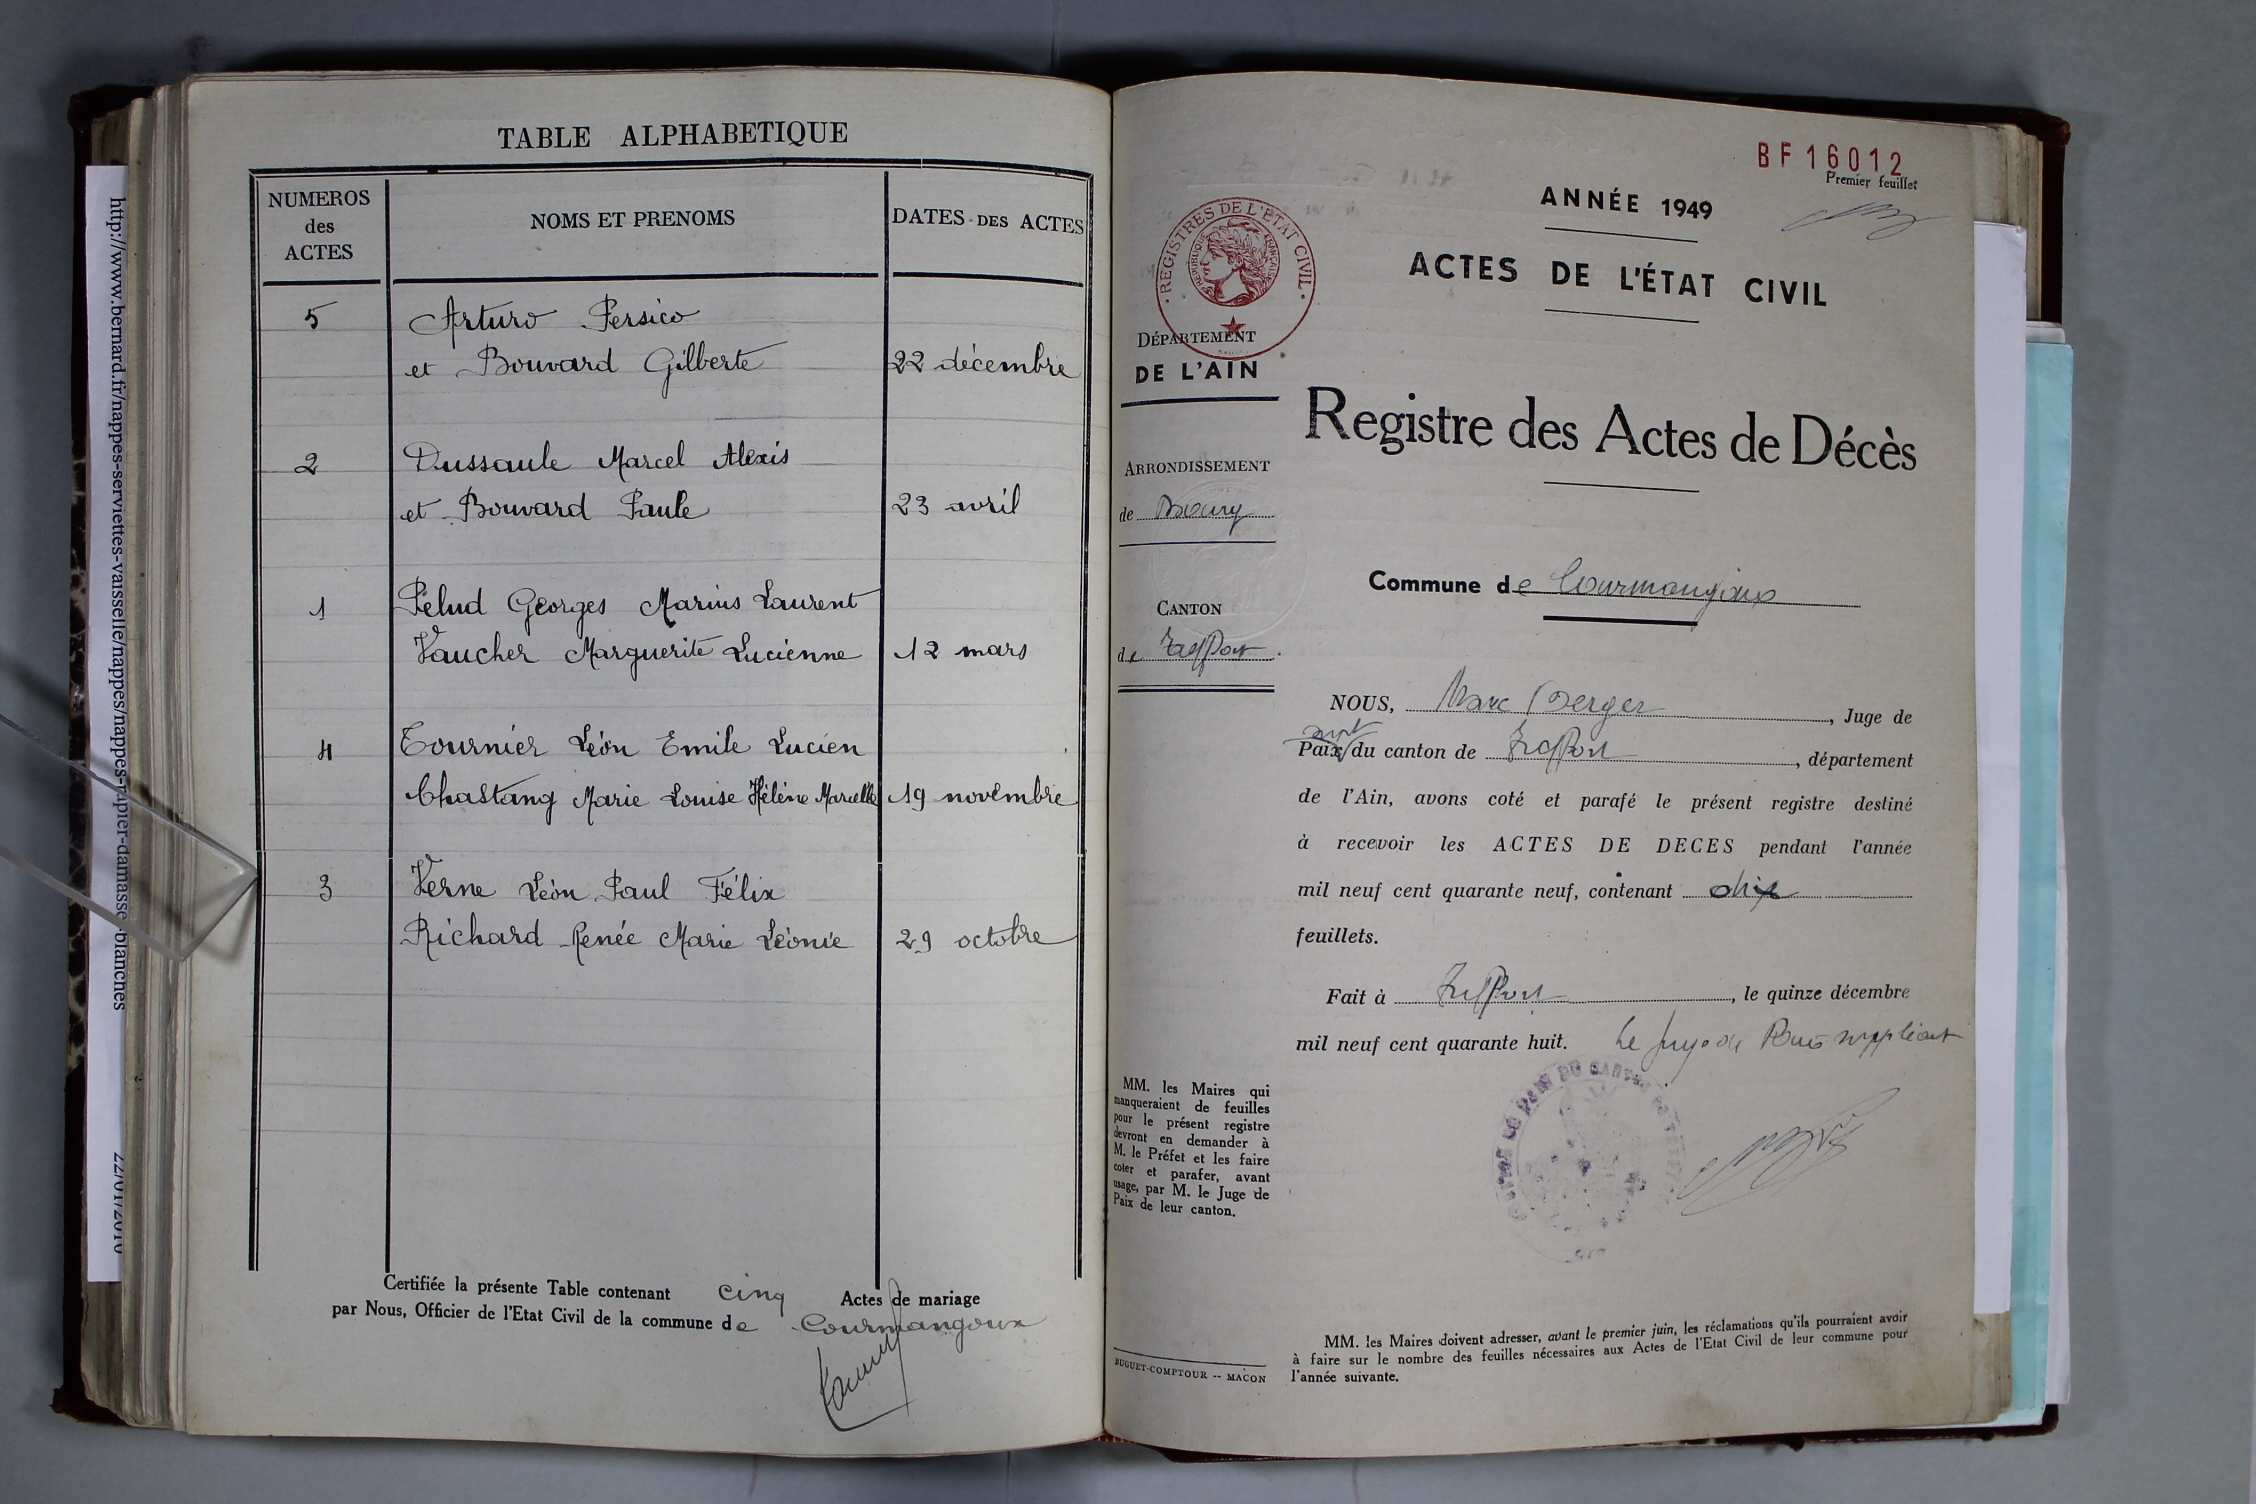 TABLE ALPHABETIQUE
NUMEROS
des
ACTES
NOMS ET PRENOMS
DATES DES ACTES
5 Arturo Persico
et Bouvard Gilberte 22 décembre
2 Dussaule Marcel Alexis
et Bouvard Paule 23 avril
1 Pélud Georges Marius Laurent
Vaucher Marguerite Lucienne 12 mars
4 Tournier Léon Emile Lucien
Chastang Marie Louise Hélène Marcelle 19 novembre
3 Verne Léon Paul Félix
Richard Renée Marie Léonie 29 octobre
Certifiée la présente Table contenant cinq Actes de mariage
par Nous, Officier de l'Etat Civil de la commune de Courmangoux
http://www.bernard.fr/nappes-serviettes-vaisselle/nappes/nappes-papier-damasse-blanches
22/01/2010
BF16012
Premier feuillet
ANNÉE 1949
ACTES DE L'ÉTAT CIVIL
REGISTRES DE L'ÉTAT CIVIL
REPUBLIQUE FRANÇAISE
DÉPARTEMENT
DE L'AIN
Registre des Actes de Décès
ARRONDISSEMENT
de Bourg
Commune de Courmangoux
CANTON
de Treffort
NOUS, Marc Berger, Juge de
Paix du canton de Treffort, département
de l'Ain, avons coté et parafé le présent registre destiné
à recevoir les ACTES DE DECES pendant l'année
mil neuf cent quarante neuf, contenant dix
feuillets.
Fait à Treffort, le quinze décembre
mil neuf cent quarante huit. Le Juge de Paix suppléant
MM. les Maires qui
manqueraient de feuilles
pour le présent registre
devront en demander à
M. le Préfet et les faire
coter et parafer, avant
usage, par M. le Juge de
Paix de leur canton.
MM. les Maires doivent adresser, avant le premier juin, les réclamations qu'ils pourraient avoir
à faire sur le nombre des feuilles nécessaires aux Actes de l'Etat Civil de leur commune pour
l'année suivante.
BUGUET-COMPTOUR -- MACON